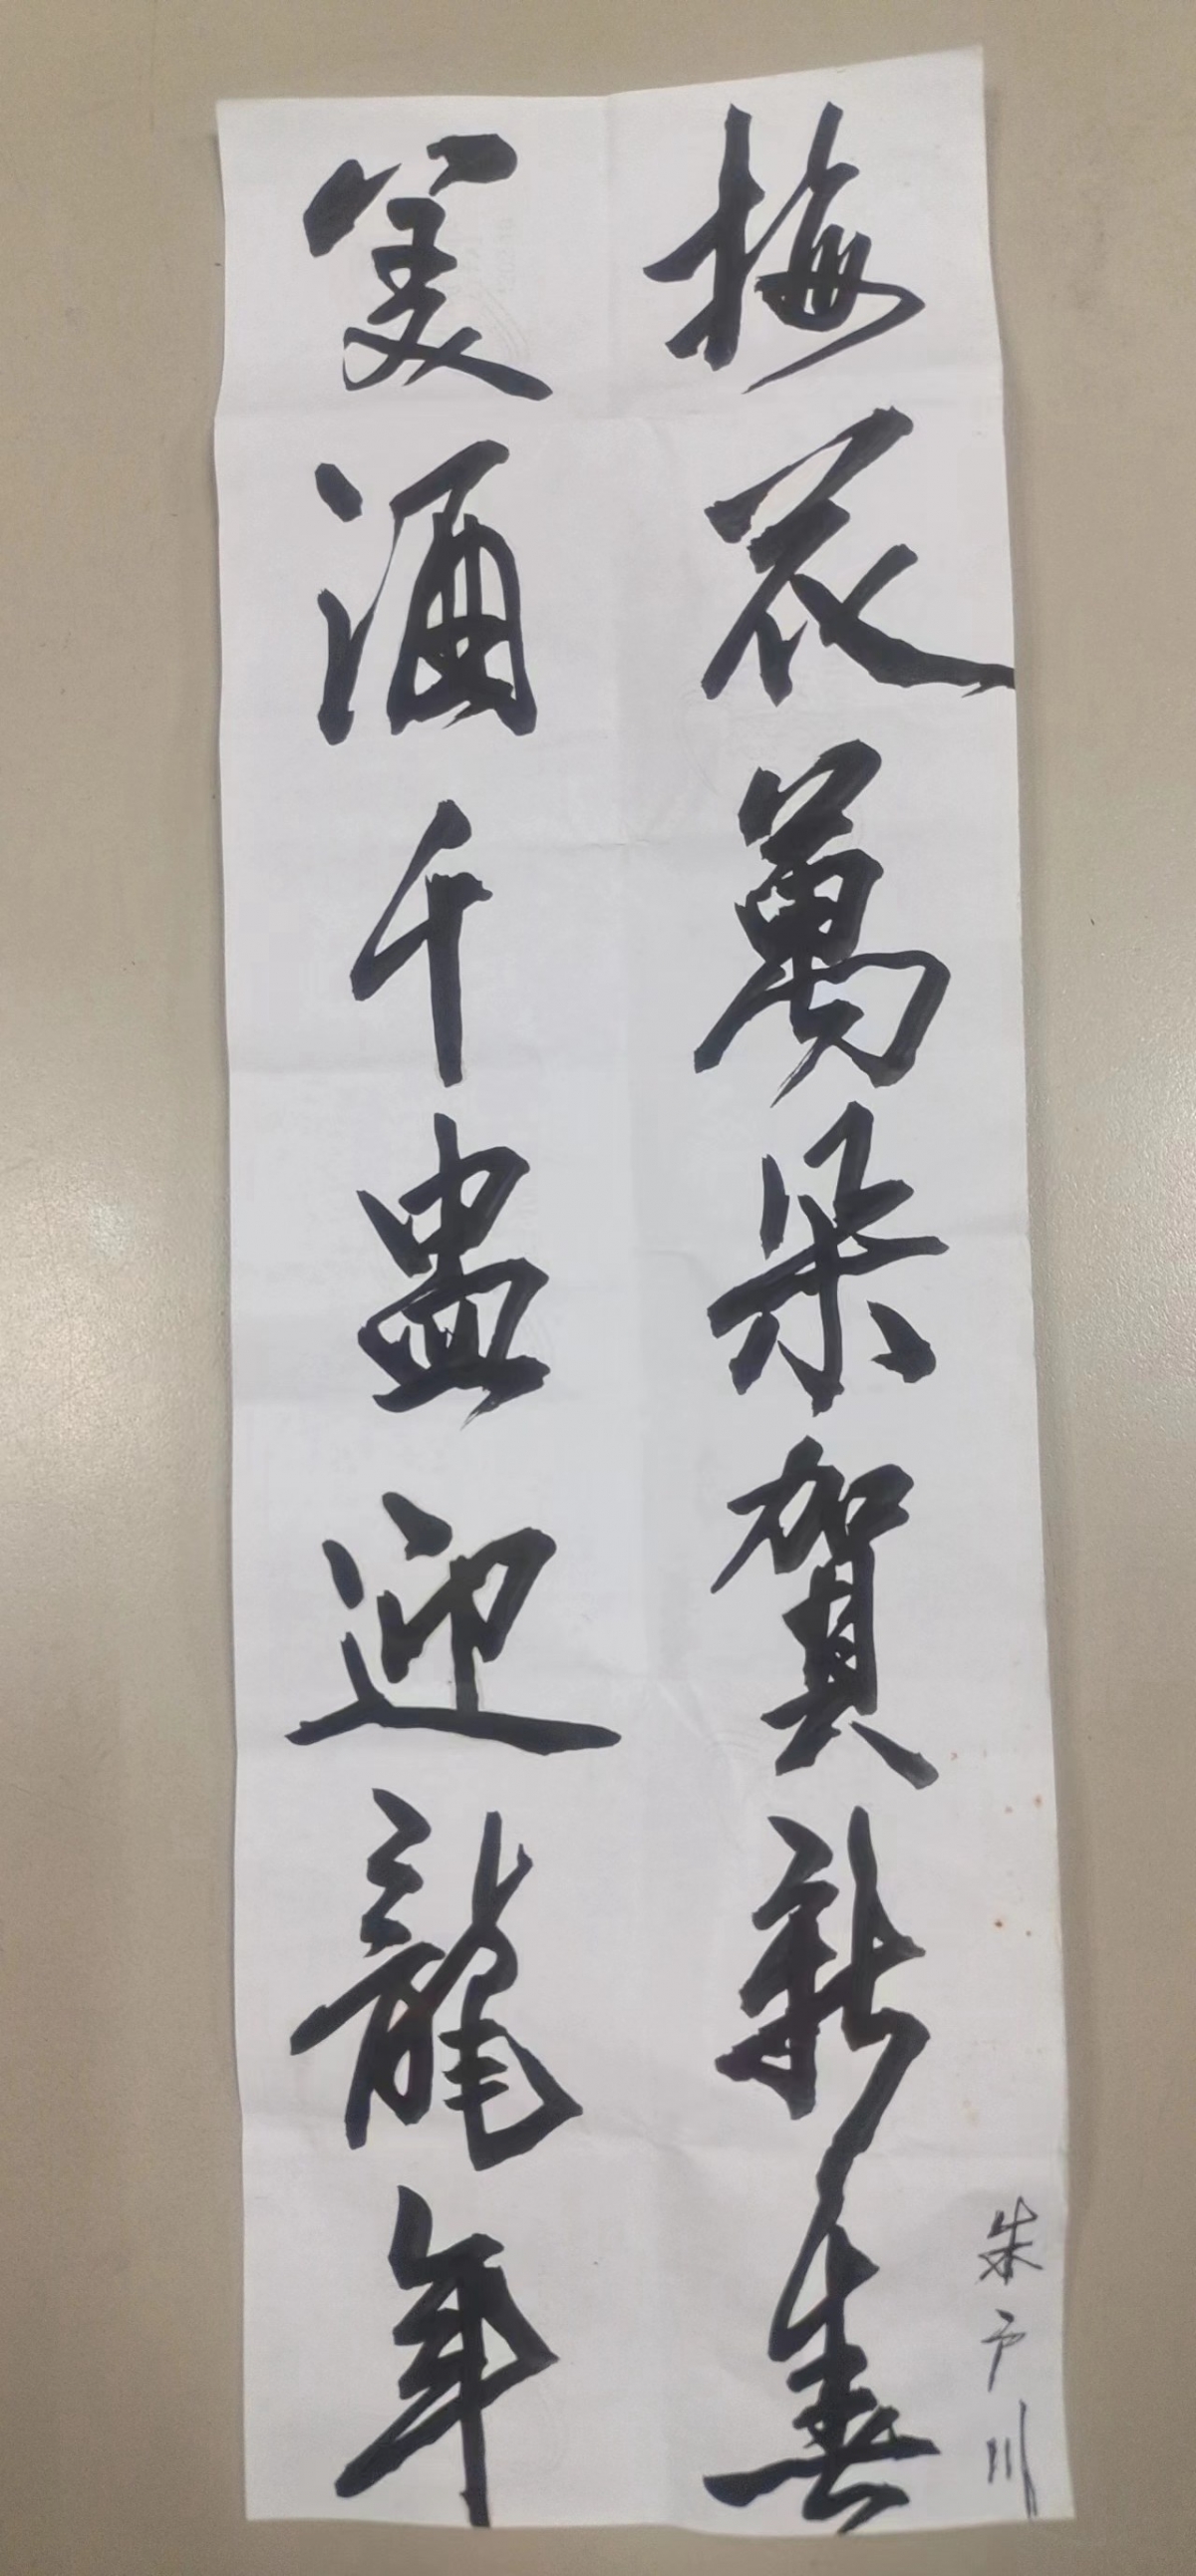 梅花萬朵賀新春
美酒千盅迎龍年
朱予川